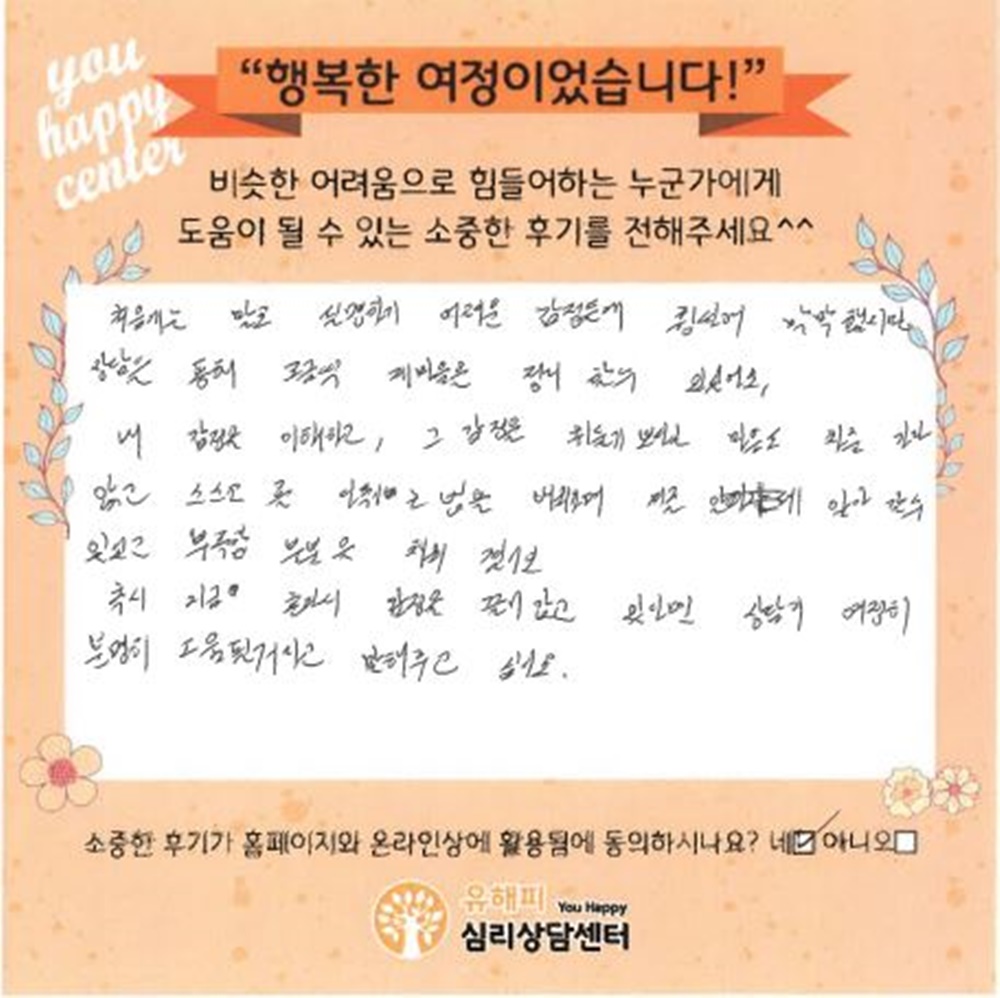 you
happy
center
“행복한 여정이었습니다!”
비슷한 어려움으로 힘들어하는 누군가에게
도움이 될 수 있는 소중한 후기를 전해주세요^^
처음에는 말로 설명하기 어려운 감정들에 휩싸여
상담을 통해 조금씩 제마음을 정리 할수 있었어요,
내 감정을 이해하고, 그 감정을
않고 스스로 를 는 법을 배웠으며 알아 갈수
있었고 부족한 부분 은 채워
혹시 지금 혼자서 감정을 끌어 안고 있다면 상담가 여정히
분명히 도움 될거라고 말해주고 싶어요.
소중한 후기가 홈페이지와 온라인상에 활용됨에 동의하시나요? 네☑ 아니오□
유해피 You Happy
심리상담센터